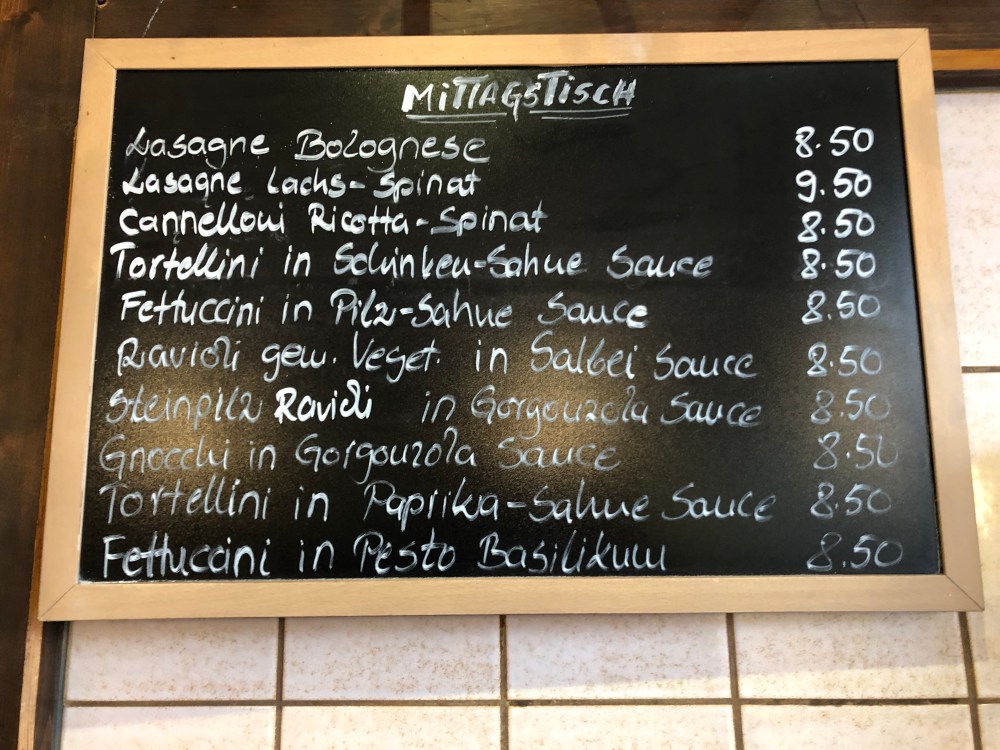 MITTAGSTISCH
Lasagne Bolognese 8.50
Lasagne Lachs-Spinat 9.50
Cannelloni Ricotta-Spinat 8.50
Tortellini in Schinken-Sahne Sauce 8.50
Fettuccini in Pilz-Sahne Sauce 8.50
Ravioli gem. Veget. in Salbei Sauce 8.50
Steinpilz Ravioli in Gorgonzola Sauce 8.50
Gnocchi in Gorgonzola Sauce 8.50
Tortellini in Paprika-Sahne Sauce 8.50
Fettuccini in Pesto Basilikum 8.50